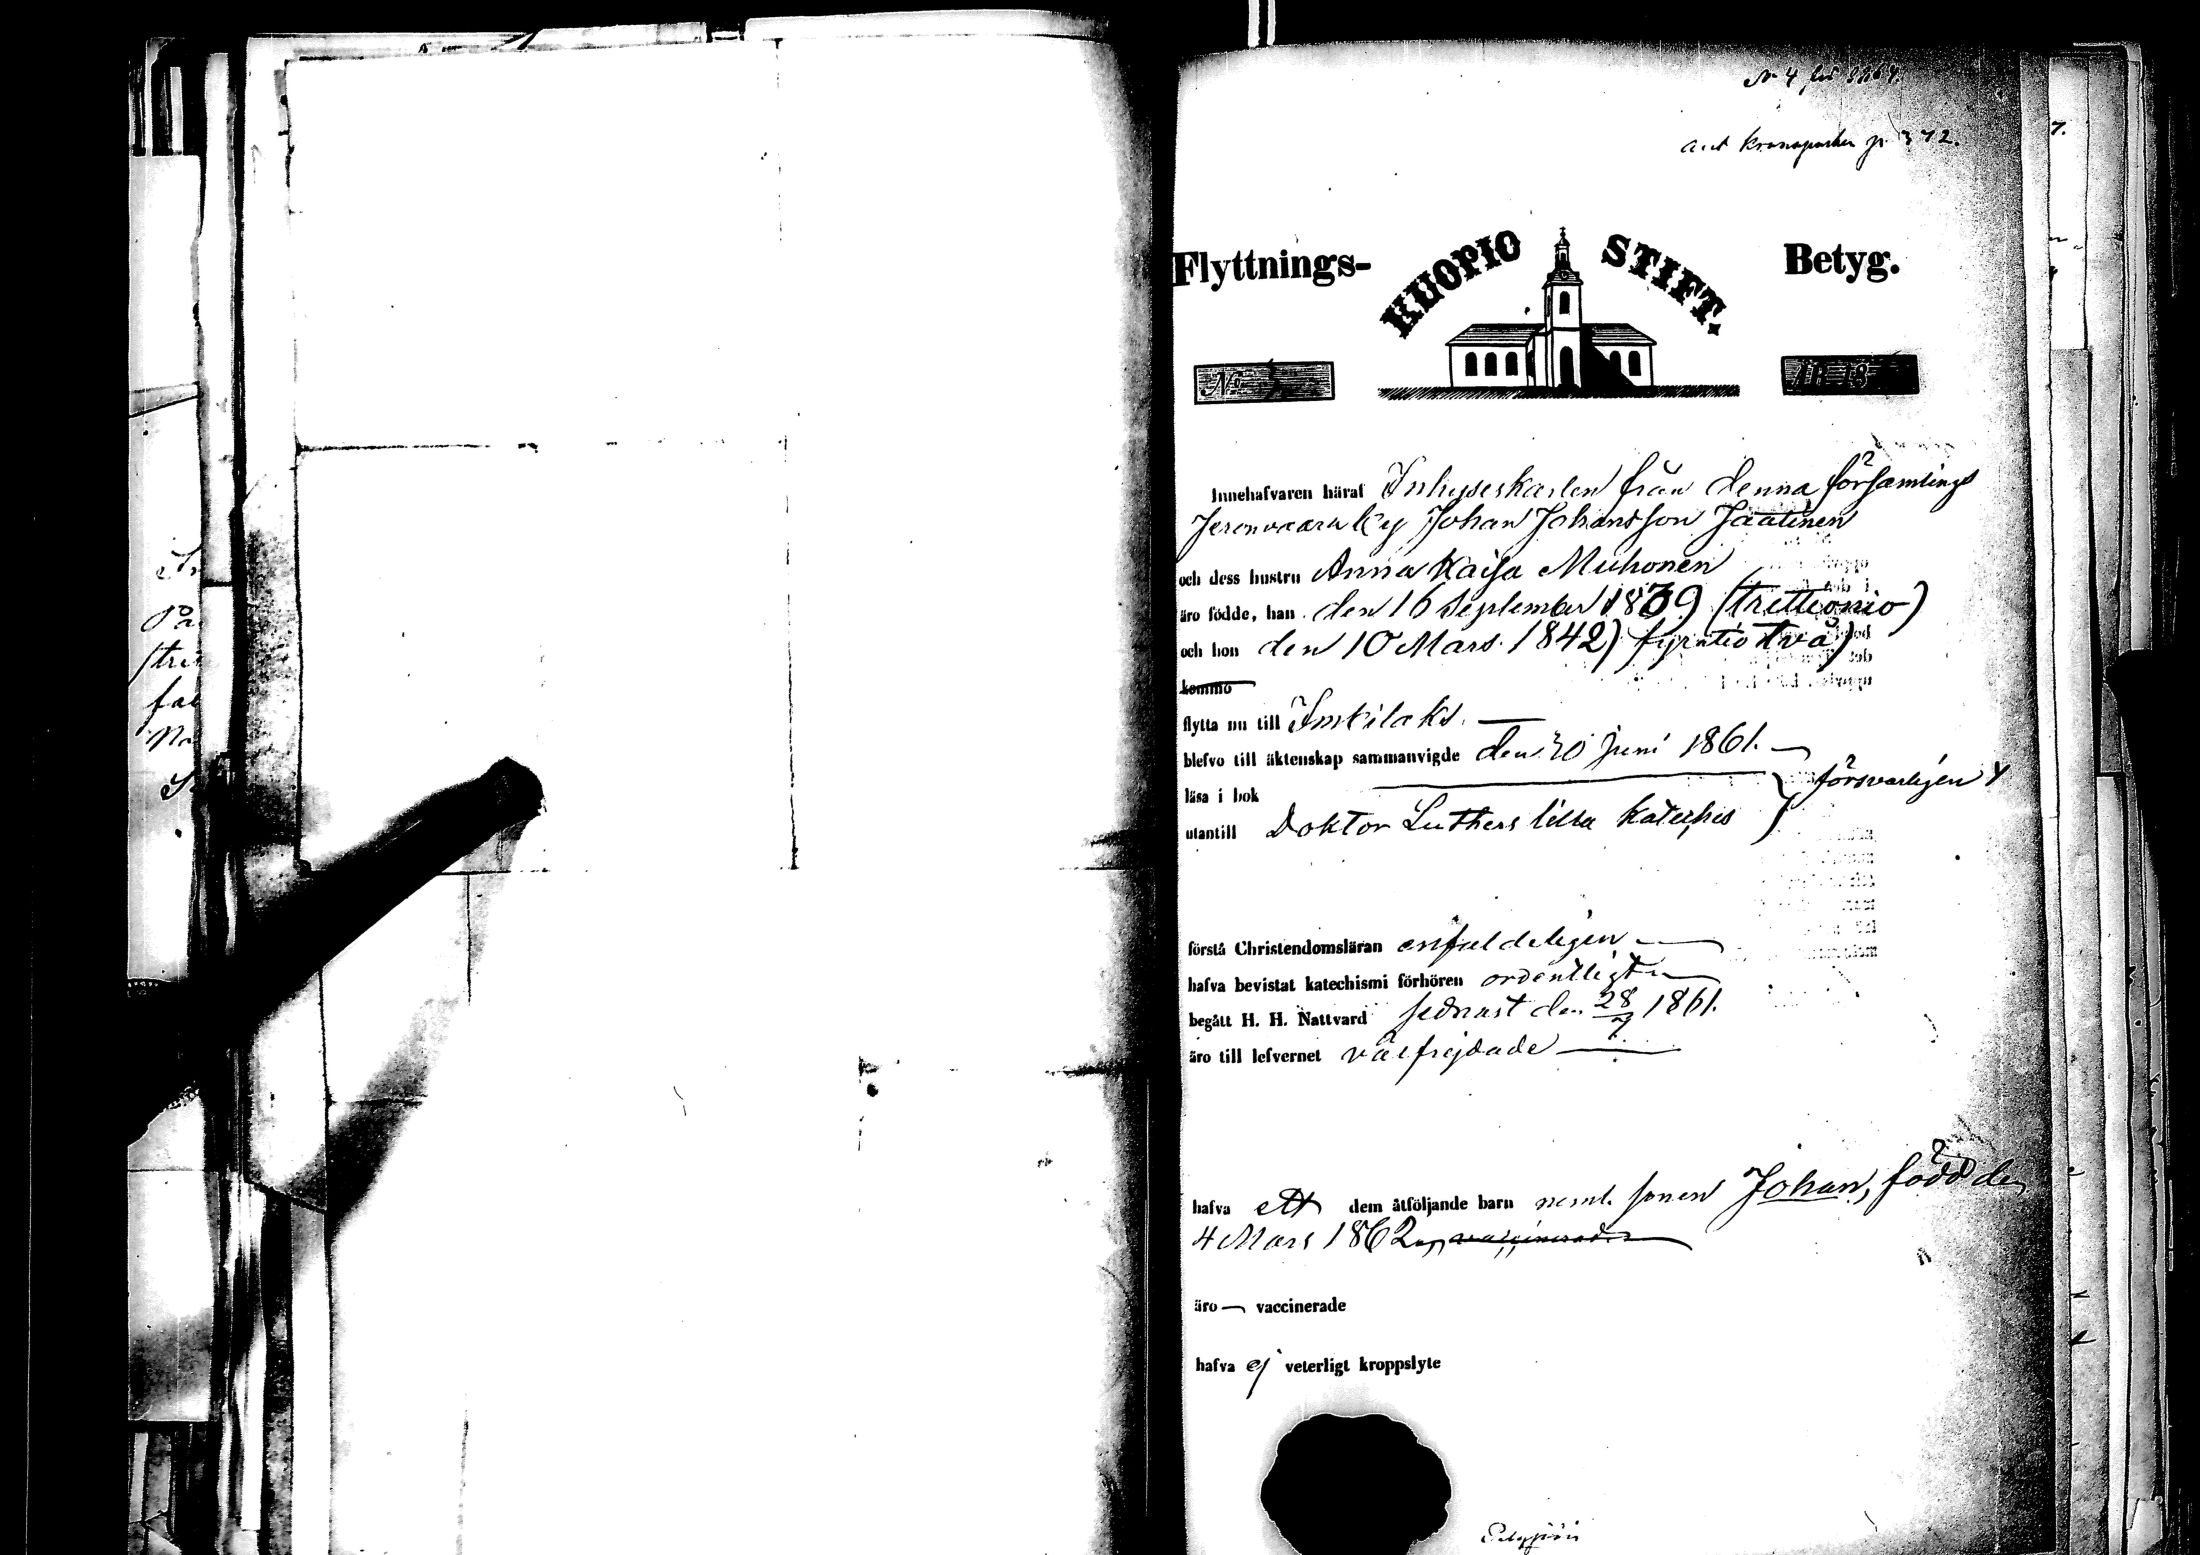 N 4 för 1864.
ant Kronoparken p. 372.
Flyttnings- KUOPIO STIFT. Betyg.
No ÅR 18
Innehafvaren häraf Inhyseskarlen från denna församlings
Jeronvaara by Johan Johansson Jaatinen
och dess hustru Anna Kaisa Muhonen
äro födde, han den 16 September 1839 (trettionio)
och hon den 10 Mars 1842) fyratio två)
kommo
flytta nu till Imbilaks.
blefvo till äktenskap sammanvigde den 30 Juni 1861.
läsa i bok försvarligen
utantill Doktor Luthers lilla kateches
förstå Christendomsläran enfaldeligen
hafva bevistat katechismi förhören ordentligt
begått H. H. Nattvard sednast den 28/7 1861.
äro till lefvernet välfrejdade
hafva ett dem åtföljande barn neml. sonen Johan, född den
4 Mars 1862, vaccinerad
äro vaccinerade
hafva ej veterligt kroppslyte